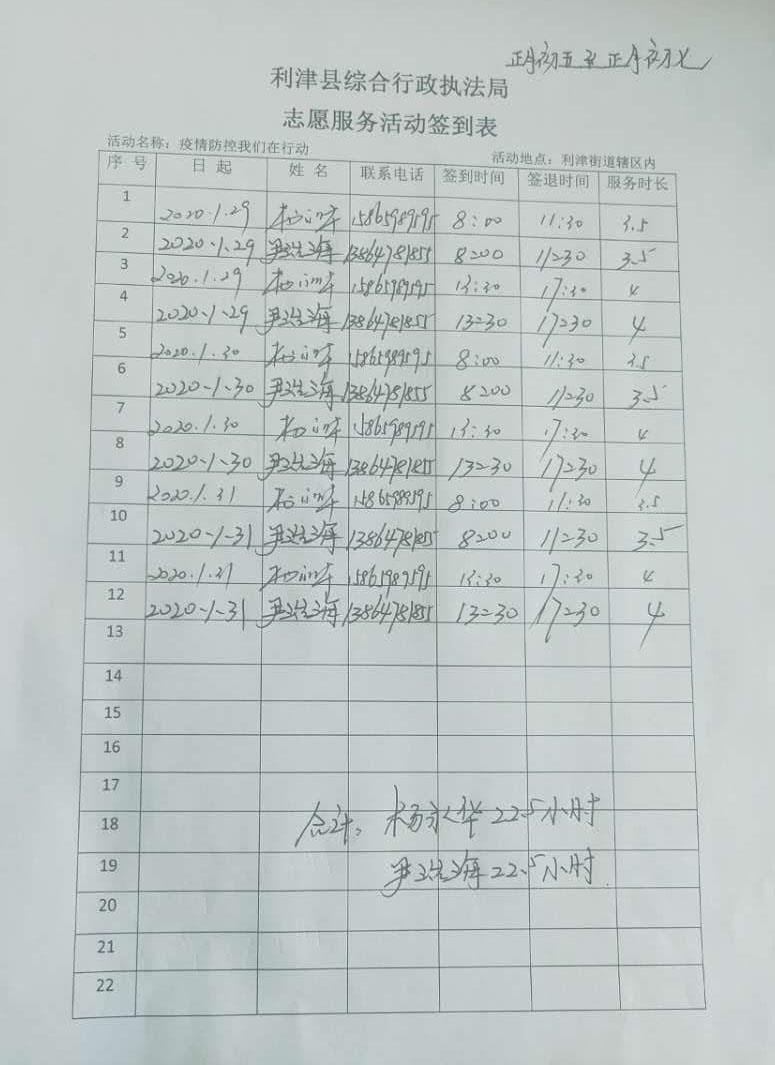 正月初五至正月初七
利津县综合行政执法局
志愿服务活动签到表
活动名称：疫情防控我们在行动 活动地点：利津街道辖区内
序 号 日 起 姓 名 联系电话 签到时间 签退时间 服务时长
1 2020.1.29 15865989595 8:00 11:30 3.5
2 2020.1.29 13864781855 8:00 11:30 3.5
3 2020.1.29 15865989595 13:30 17:30 4
4 2020.1.29 13864781855 13:30 17:30 4
5 2020.1.30 15865989595 8:00 11:30 3.5
6 2020.1.30 13864781855 8:00 11:30 3.5
7 2020.1.30 15865989595 13:30 17:30 4
8 2020.1.30 13864781855 13:30 17:30 4
9 2020.1.31 15865989595 8:00 11:30 3.5
10 2020.1.31 13864781855 8:00 11:30 3.5
11 2020.1.31 15865989595 13:30 17:30 4
12 2020.1.31 13864781855 13:30 17:30 4
13
14
15
16
17
18 合计：杨永华 22.5小时
19 尹 海 22.5小时
20
21
22